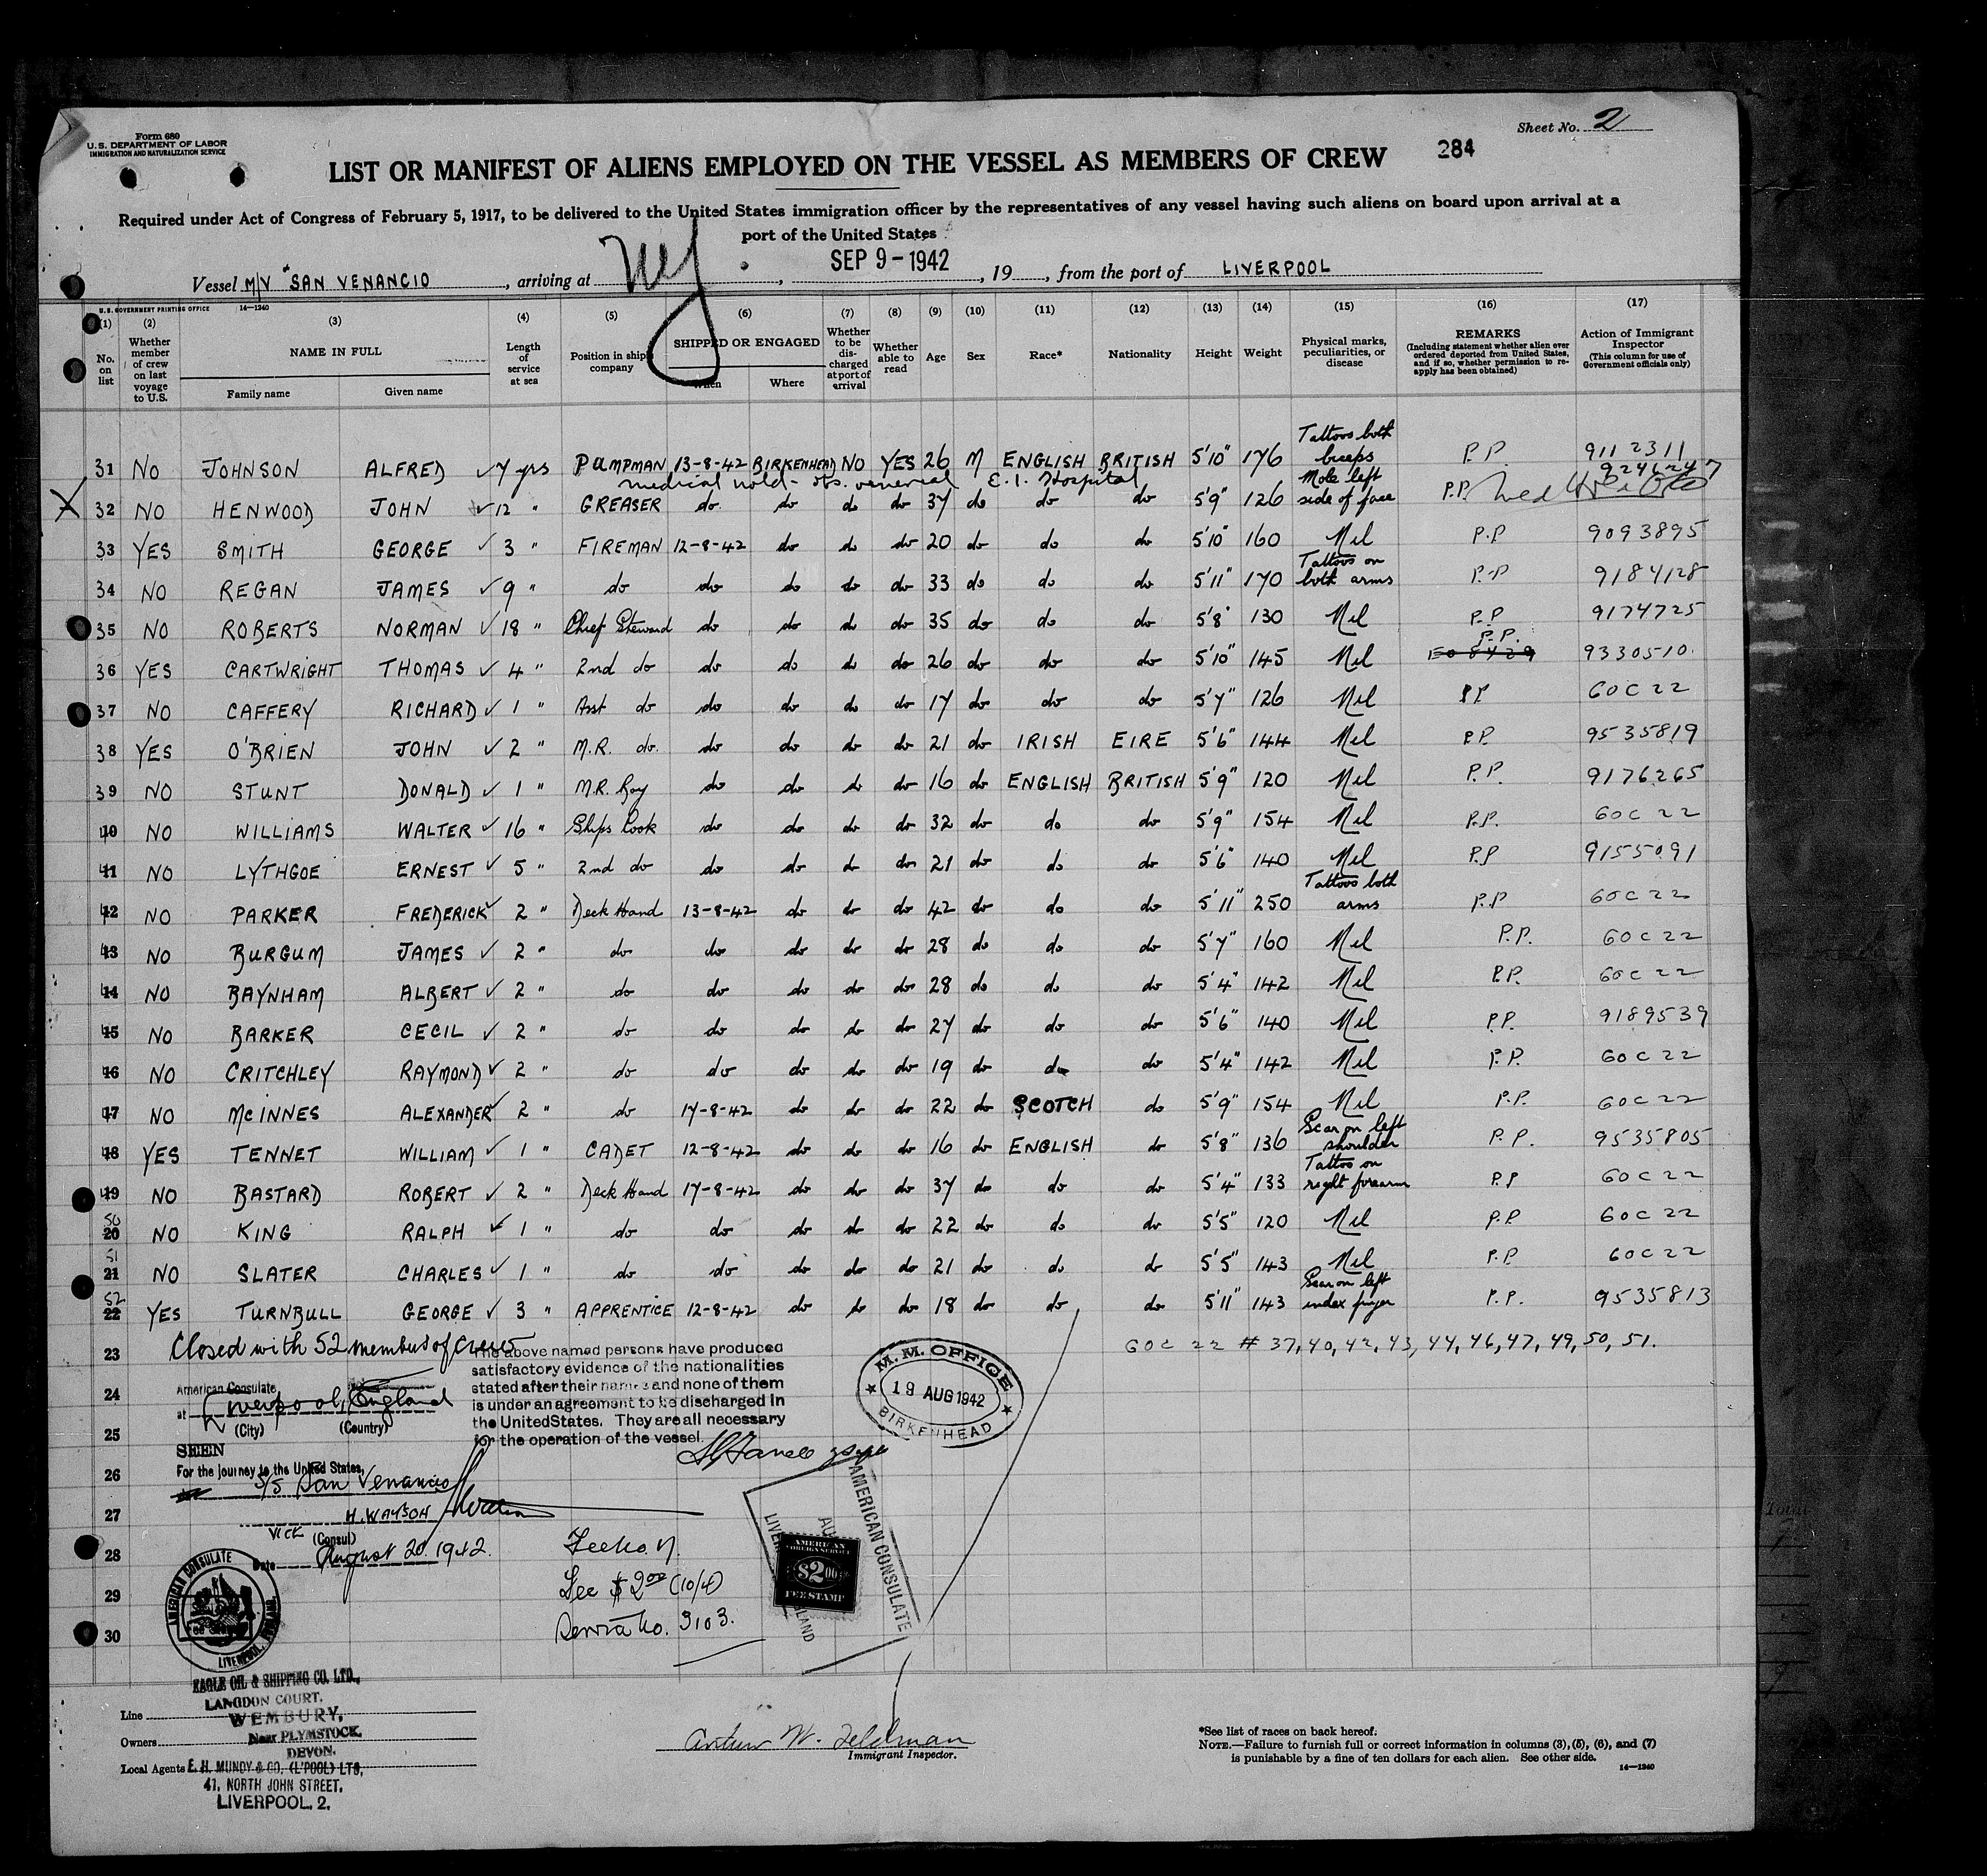 Form 680
U.S. DEPARTMENT OF LABOR
IMMIGRATION AND NATURALIZATION SERVICE
Sheet No. 2
284
LIST OR MANIFEST OF ALIENS EMPLOYED ON THE VESSEL AS MEMBERS OF CREW
Required under Act of Congress of February 5, 1917, to be delivered to the United States immigration officer by the representatives of any vessel having such aliens on board upon arrival at a
port of the United States
Vessel M/V "SAN VENANCIO, arriving at NY, SEP 9-1942, 19, from the port of LIVERPOOL
U.S. GOVERNMENT PRINTING OFFICE 14—1240
(1) (2) (3) (4) (5) (6) (7) (8) (9) (10) (11) (12) (13) (14) (15) (16) (17)
No. on list
Whether member of crew on last voyage to U.S.
NAME IN FULL
Family name Given name
Length of service at sea
Position in ship's company
SHIPPED OR ENGAGED
When Where
Whether to be discharged at port of arrival
Whether able to read
Age
Sex
Race*
Nationality
Height
Weight
Physical marks, peculiarities, or disease
REMARKS
(Including statement whether alien ever ordered deported from United States, and if so, whether permission to reapply has been obtained)
Action of Immigrant Inspector
(This column for use of Government officials only)
31 NO JOHNSON ALFRED ✓ 7 yrs PUMPMAN 13-8-42 BIRKENHEAD NO YES 26 M ENGLISH BRITISH 5'10" 176 Tattoos both biceps P.P. 9112311
medical hold - obs. venereal E.I. Hospital
X 32 NO HENWOOD JOHN ✓ 12 " GREASER do do do do 37 do do do 5'9" 126 Mole left side of face P.P.
33 YES SMITH GEORGE ✓ 3 " FIREMAN 12-8-42 do do do 20 do do do 5'10" 160 Nil P.P 9093895
34 NO REGAN JAMES ✓ 9 " do do do do do 33 do do do 5'11" 170 Tattoos on both arms P.P 9184128
35 NO ROBERTS NORMAN ✓ 18 " Chief Steward do do do do 35 do do do 5'8" 130 Nil P.P 9174725
36 YES CARTWRIGHT THOMAS ✓ 4 " 2nd do do do do do 26 do do do 5'10" 145 Nil P.P. 9330510
37 NO CAFFERY RICHARD ✓ 1 " Asst do do do do do 17 do do do 5'7" 126 Nil P.P 60C 22
38 YES O'BRIEN JOHN ✓ 2 " M.R. do. do do do do 21 do IRISH EIRE 5'6" 144 Nil P.P. 9535819
39 NO STUNT DONALD ✓ 1 " M.R. Boy do do do do 16 do ENGLISH BRITISH 5'9" 120 Nil P.P. 9176265
40 NO WILLIAMS WALTER ✓ 16 " Ships Cook do do do do 32 do do do 5'9" 154 Nil P.P. 60C 22
41 NO LYTHGOE ERNEST ✓ 5 " 2nd do do do do do 21 do do do 5'6" 140 Nil P.P 9155091
42 NO PARKER FREDERICK ✓ 2 " Deck Hand 13-8-42 do do do 42 do do do 5'11" 250 Tattoos both arms P.P 60C 22
43 NO BURGUM JAMES ✓ 2 " do do do do do 28 do do do 5'7" 160 Nil P.P. 60C 22
44 NO BAYNHAM ALBERT ✓ 2 " do do do do do 28 do do do 5'4" 142 Nil P.P. 60C 22
45 NO BARKER CECIL ✓ 2 " do do do do do 27 do do do 5'6" 140 Nil P.P. 9189539
46 NO CRITCHLEY RAYMOND ✓ 2 " do do do do do 19 do do do 5'4" 142 Nil P.P. 60C 22
47 NO McINNES ALEXANDER ✓ 2 " do 17-8-42 do do do 22 do SCOTCH do 5'9" 154 Nil P.P. 60C 22
48 YES TENNET WILLIAM ✓ 1 " CADET 12-8-42 do do do 16 do ENGLISH do 5'8" 136 Scar on left shoulder P.P. 9535805
49 NO BASTARD ROBERT ✓ 2 " Deck Hand 17-8-42 do do do 37 do do do 5'4" 133 Tattoo on right forearm P.P 60C 22
50 20 NO KING RALPH ✓ 1 " do do do do do 22 do do do 5'5" 120 Nil P.P. 60C 22
51 21 NO SLATER CHARLES ✓ 1 " do do do do do 21 do do do 5'5" 143 Nil P.P 60C 22
52 22 YES TURNBULL GEORGE ✓ 3 " APPRENTICE 12-8-42 do do do 18 do do do 5'11" 143 Scar on left index finger P.P. 9535813
23 Closed with 52 members of crew
60C 22 # 37, 40, 42, 43, 44, 46, 47, 49, 50, 51.
The above named persons have produced
satisfactory evidence of the nationalities
stated after their names and none of them
is under an agreement to be discharged in
the United States. They are all necessary
for the operation of the vessel.
M.M. OFFICE
19 AUG 1942
BIRKENHEAD
24
American Consulate
at Liverpool, England
(City) (Country)
25
SEEN
26
For the journey to the United States,
S/S San Venancio
27
H. WATSON
VICE (Consul)
28
Date August 20 1942.
29
30
Fee $2.00 (10/4)
Service No. 3103.
AMERICAN CONSULATE
AMERICAN
FOREIGN SERVICE
$2.00
FEE STAMP
AMERICAN CONSULATE
LIVERPOOL
EAGLE OIL & SHIPPING CO. LTD.,
LANGDON COURT,
WEMBURY,
Near PLYMSTOCK,
DEVON.
Line
Owners
Local Agents E. H. MUNDY & CO. (L'POOL) LTD,
41, NORTH JOHN STREET,
LIVERPOOL, 2.
Arthur W. Feldman
Immigrant Inspector.
*See list of races on back hereof.
NOTE.—Failure to furnish full or correct information in columns (3), (5), (6), and (7)
is punishable by a fine of ten dollars for each alien. See other side.
14—1240